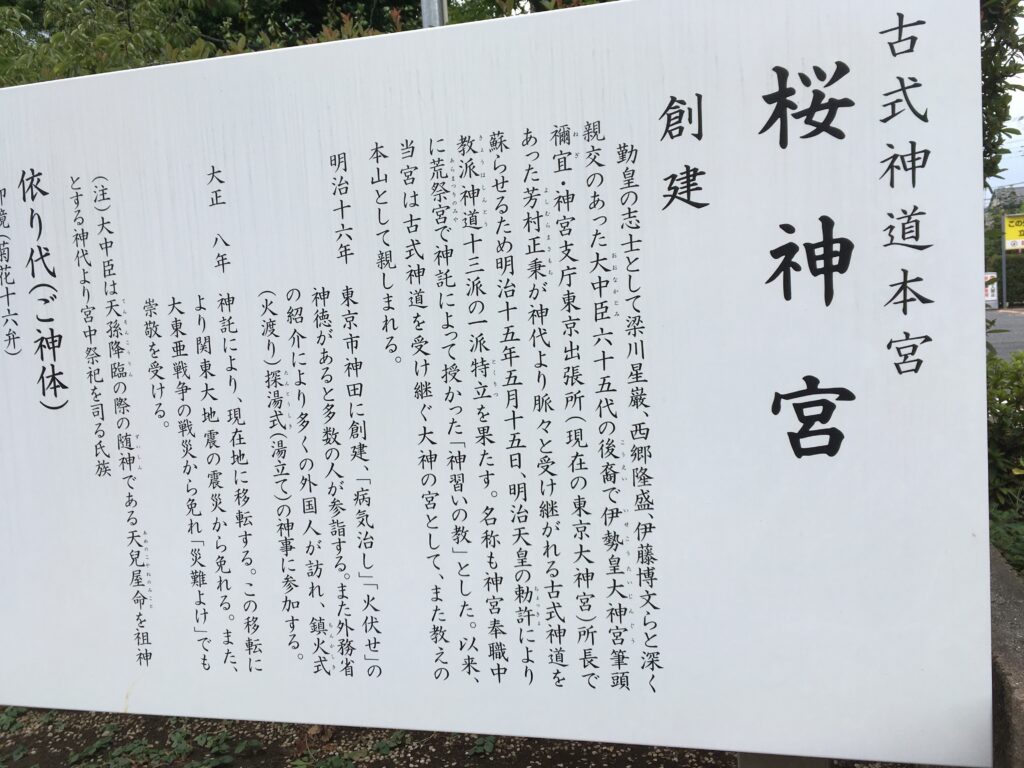 古式神道本宮
桜神宮
創建
勤皇の志士として梁川星巌、西郷隆盛、伊藤博文らと深く
親交のあった大中臣六十五代の後裔で伊勢皇大神宮筆頭
禰宜・神宮支庁東京出張所（現在の東京大神宮）所長で
あった芳村正秉が神代より脈々と受け継がれる古式神道を
蘇らせるため明治十五年五月十五日、明治天皇の勅許により
教派神道十三派の一派特立を果たす。名称も神宮奉職中
に荒祭宮で神託によって授かった「神習いの教」とした。以来、
当宮は古式神道を受け継ぐ大神の宮として、また教えの
本山として親しまれる。
明治十六年 東京市神田に創建、「病気治し」「火伏せ」の
神徳があると多数の人が参詣する。また外務省
の紹介により多くの外国人が訪れ、鎮火式
（火渡り）探湯式（湯立て）の神事に参加する。
大正 八年 神託により、現在地に移転する。この移転に
より関東大地震の震災から免れる。また、
大東亜戦争の戦災から免れ「災難よけ」でも
崇敬を受ける。
（注）大中臣は天孫降臨の際の随神である天兒屋命を祖神
とする神代より宮中祭祀を司る氏族
依り代（ご神体）
御鏡（菊花十六弁）